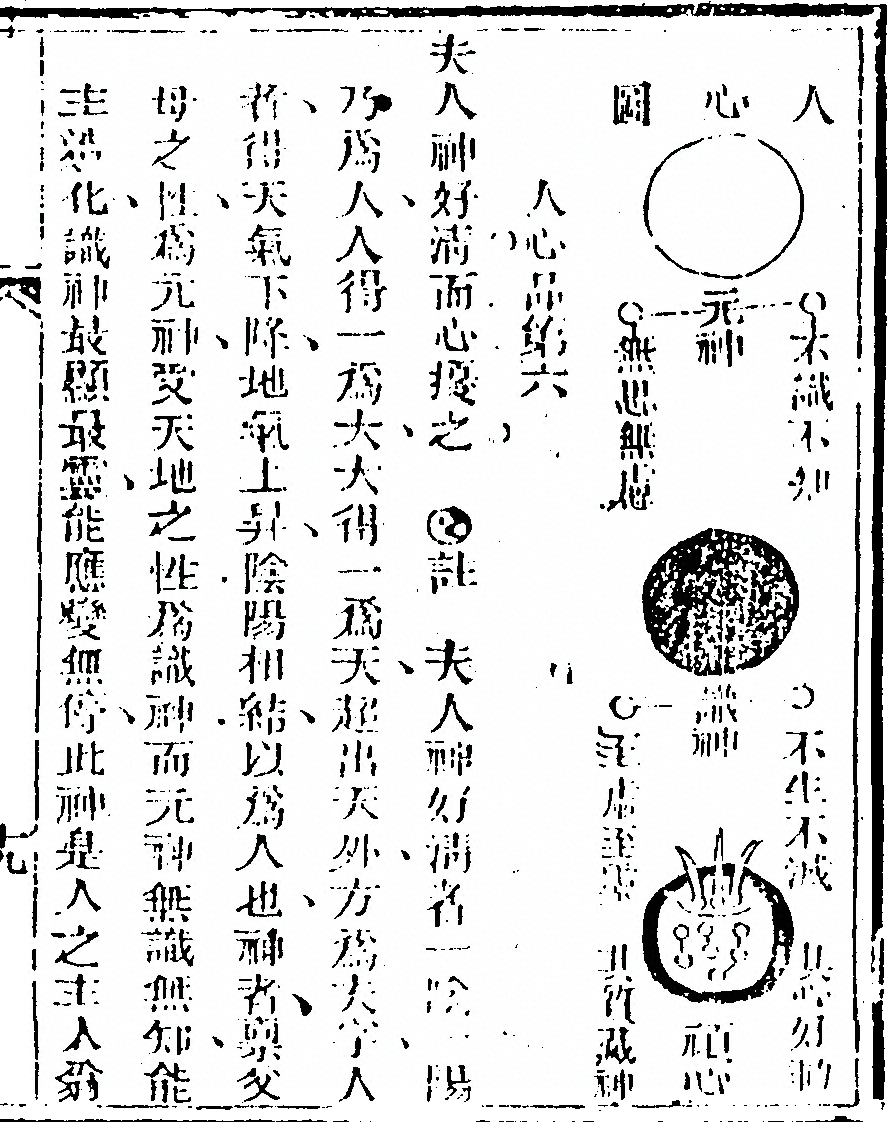 人心圖
元神
不識不知
無思無慮
識神
不生不滅
頑心
人心品第六
夫人神好清而心擾之 註 夫人神好清者一陰一陽
乃為人人得一為大大得一為天超出天外方為夫字人
者得天氣下降地氣上昇陰陽相結以為人也神者稟父
母之性為元神受天地之性為識神而元神無識無知能
主造化識神最顯最靈能應變無停此神是人之主人翁
九